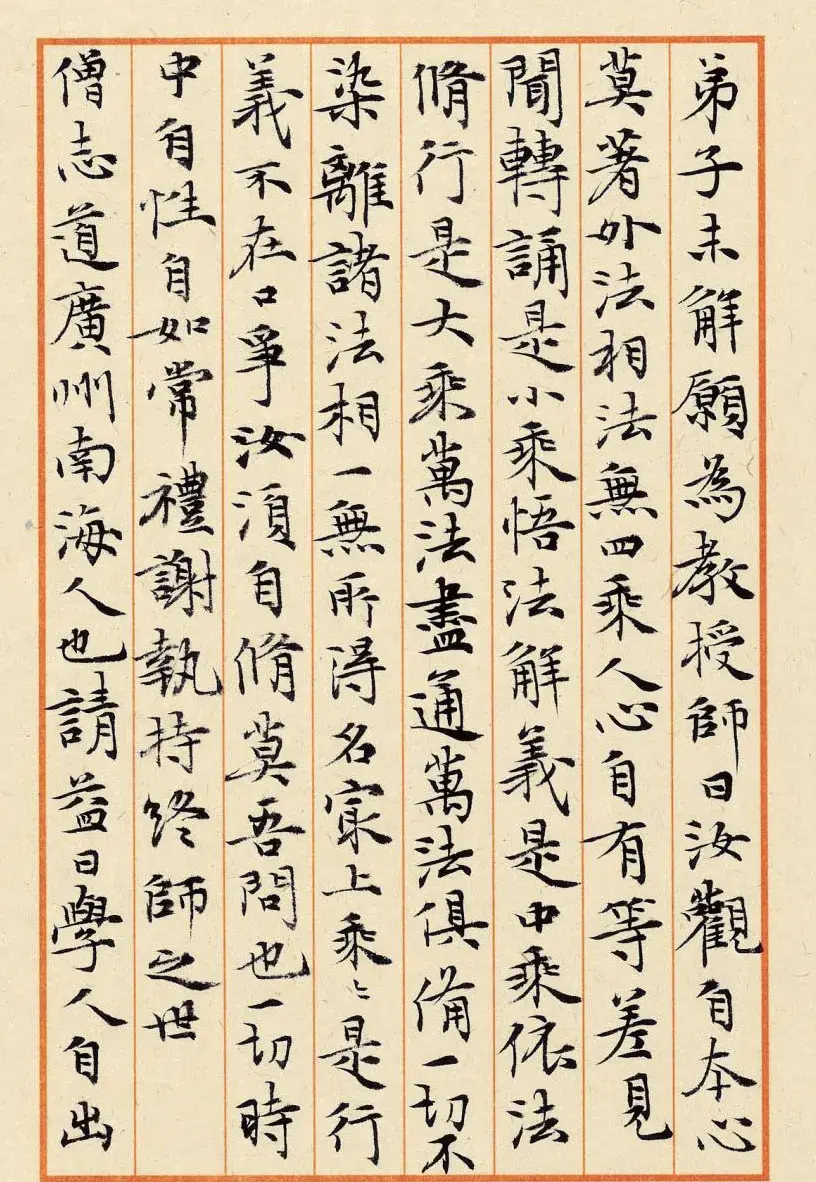 弟子未解願為教授師曰汝觀自本心
莫著外法相法無四乘人心自有等差見
聞轉誦是小乘悟法解義是中乘依法
脩行是大乘萬法盡通萬法俱備一切不
染離諸法相一無所得名寂上乘〻是行
義不在口爭汝須自脩莫吾問也一切時
中自性自如常禮謝執持終師之世
僧志道廣州南海人也請益曰學人自出